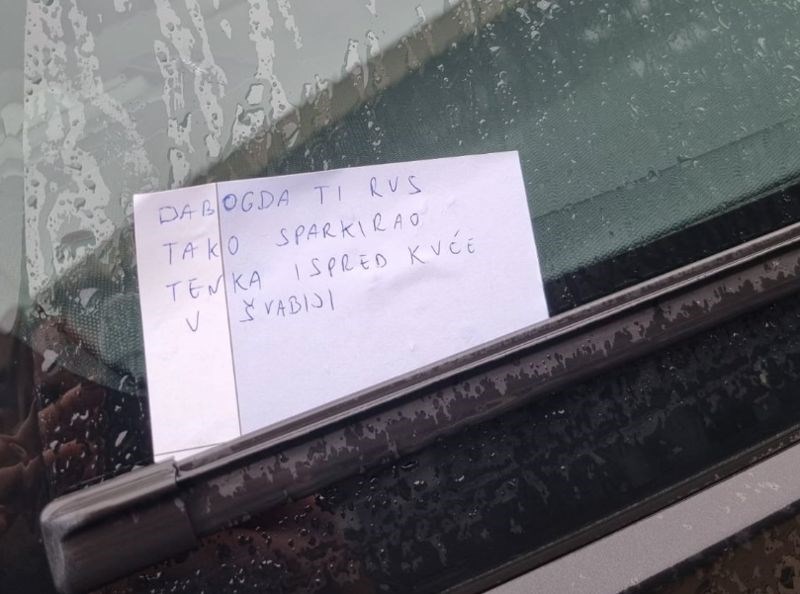 DABOGDA TI RUS
TAKO SPARKIRAO
TENKA ISPRED KUĆE
U ŠVABIJI